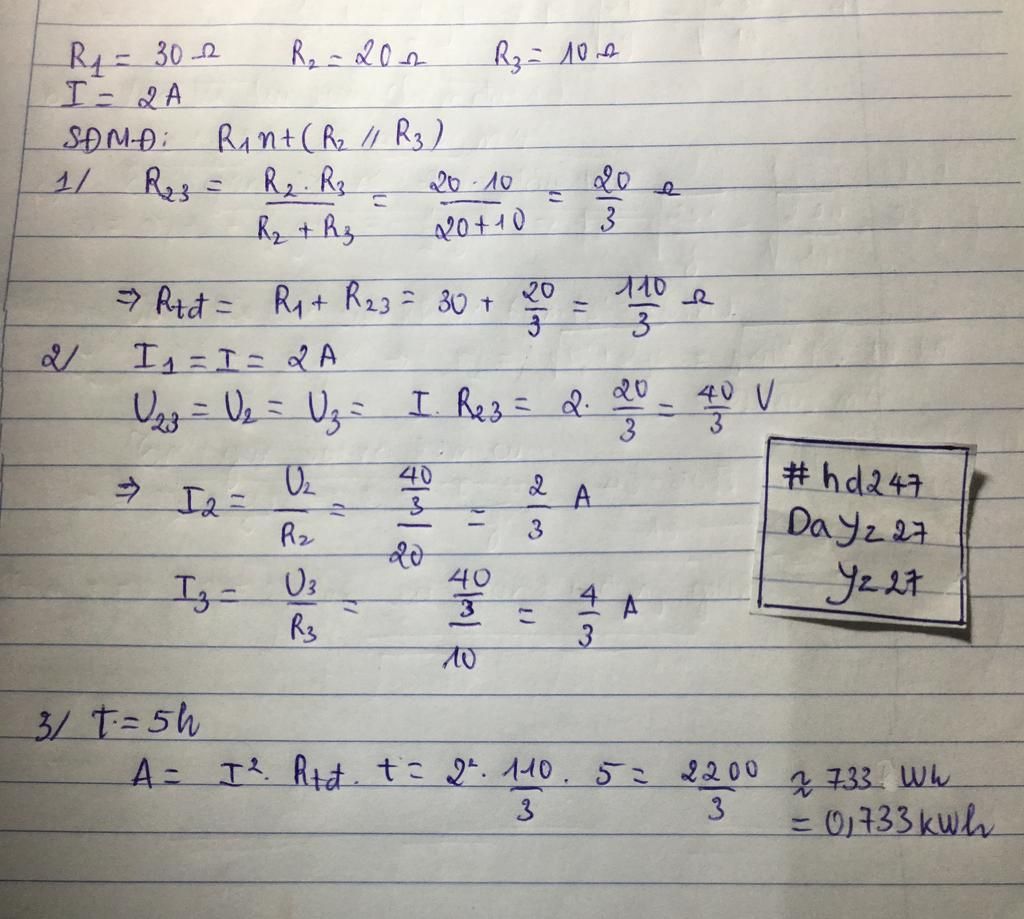 R1 = 30 Ω R2 = 20 Ω R3 = 10 Ω
I = 2 A
SĐMĐ: R1 nt (R2 // R3)
1/ R23 = R2 . R3 / R2 + R3 = 20 . 10 / 20 + 10 = 20/3 Ω
⇒ Rtđ = R1 + R23 = 30 + 20/3 = 110/3 Ω
2/ I1 = I = 2 A
U23 = U2 = U3 = I . R23 = 2 . 20/3 = 40/3 V
⇒ I2 = U2/R2 = 40/3 / 20 = 2/3 A
I3 = U3/R3 = 40/3 / 10 = 4/3 A
#hd247
DaYz27
Yz27
3/ t = 5h
A = I² . Rtđ . t = 2² . 110/3 . 5 = 2200/3 ≈ 733 Wh
= 0,733 kWh